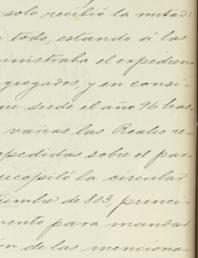 solo recibió la mitad:
todo, estando á las
ministraba el expedien
gregados, y en consi-
que desde el año 96 has
varias las Reales re
spedidas sobre el par
recopiló la circular
tiembre de 803, princi-
mento para mandar
n de las menciona